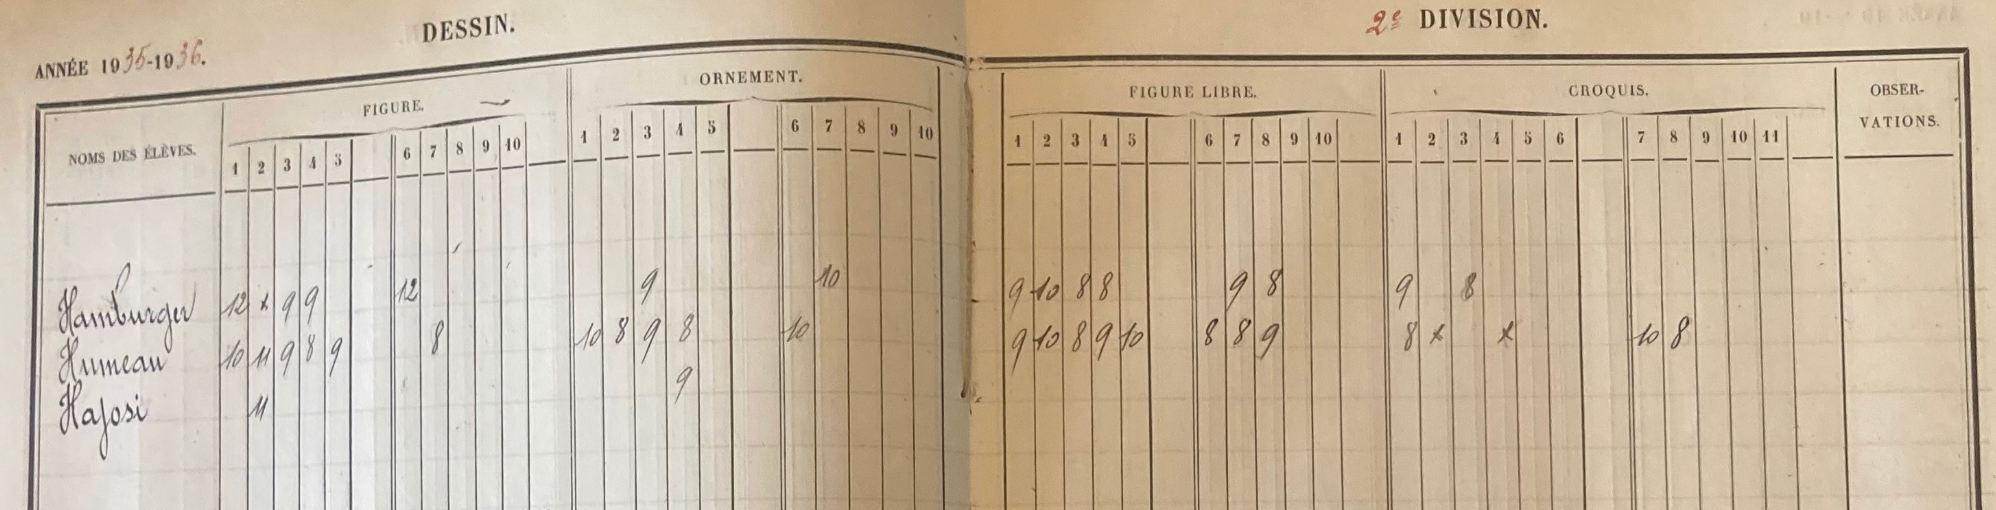 DESSIN.
2e DIVISION.
ANNÉE 1935-1936.
NOMS DES ÉLÈVES. FIGURE. ORNEMENT. FIGURE LIBRE. CROQUIS. OBSER-
VATIONS.
1 2 3 4 5 6 7 8 9 10 1 2 3 4 5 6 7 8 9 10 1 2 3 4 5 6 7 8 9 10 1 2 3 4 5 6 7 8 9 10 11
Hamburger 12 x 9 9 12 9 10 9 10 8 8 9 8 9 8
Humeau 10 11 9 8 9 8 10 8 9 8 10 9 10 8 9 10 8 8 9 8 x x 10 8
Hajosi 11 9